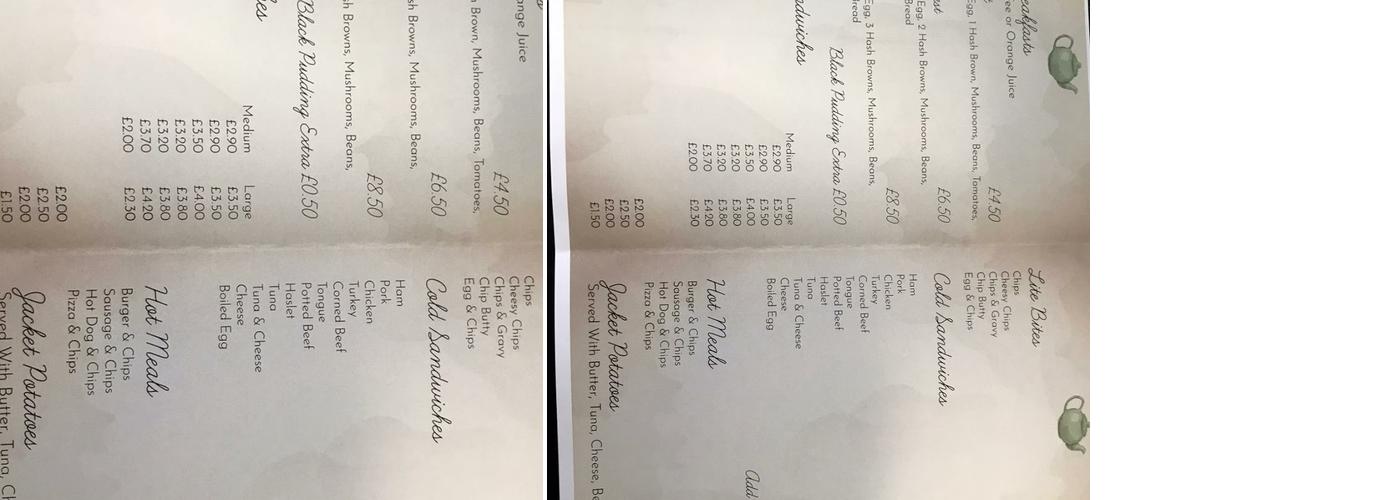 Orange Juice
Brown, Mushrooms, Beans, Tomatoes,
£4.50
£6.50
Browns, Mushrooms, Beans,
£8.50
Browns, Mushrooms, Beans,
Black Pudding Extra £0.50
Medium Large
£2.90 £3.50
£2.90 £3.50
£3.50 £4.00
£3.20 £3.80
£3.20 £3.80
£3.70 £4.20
£2.00 £2.30
£2.00
£2.50
£2.00
£1.50
Chips
Cheesy Chips
Chips & Gravy
Chip Butty
Egg & Chips
Cold Sandwiches
Ham
Pork
Chicken
Turkey
Corned Beef
Tongue
Potted Beef
Haslet
Tuna
Tuna & Cheese
Cheese
Boiled Egg
Hot Meals
Burger & Chips
Sausage & Chips
Hot Dog & Chips
Pizza & Chips
Jacket Potatoes
Served With Butter, Tuna,
Breakfasts
or Orange Juice
£4.50
Egg, 1 Hash Brown, Mushrooms, Beans, Tomatoes,
£6.50
Egg, 2 Hash Browns, Mushrooms, Beans,
Bread
£8.50
Egg, 3 Hash Browns, Mushrooms, Beans,
Bread
Black Pudding Extra £0.50
Sandwiches
Medium Large
£2.90 £3.50
£2.90 £3.50
£3.50 £4.00
£3.20 £3.80
£3.20 £3.80
£3.70 £4.20
£2.00 £2.30
£2.00
£2.50
£2.00
£1.50
Lite Bites
Chips
Cheesy Chips
Chips & Gravy
Chip Butty
Egg & Chips
Cold Sandwiches
Ham
Pork
Chicken
Turkey
Corned Beef
Tongue
Potted Beef
Haslet
Tuna
Tuna & Cheese
Cheese
Boiled Egg
Add
Hot Meals
Burger & Chips
Sausage & Chips
Hot Dog & Chips
Pizza & Chips
Jacket Potatoes
Served With Butter, Tuna, Cheese,